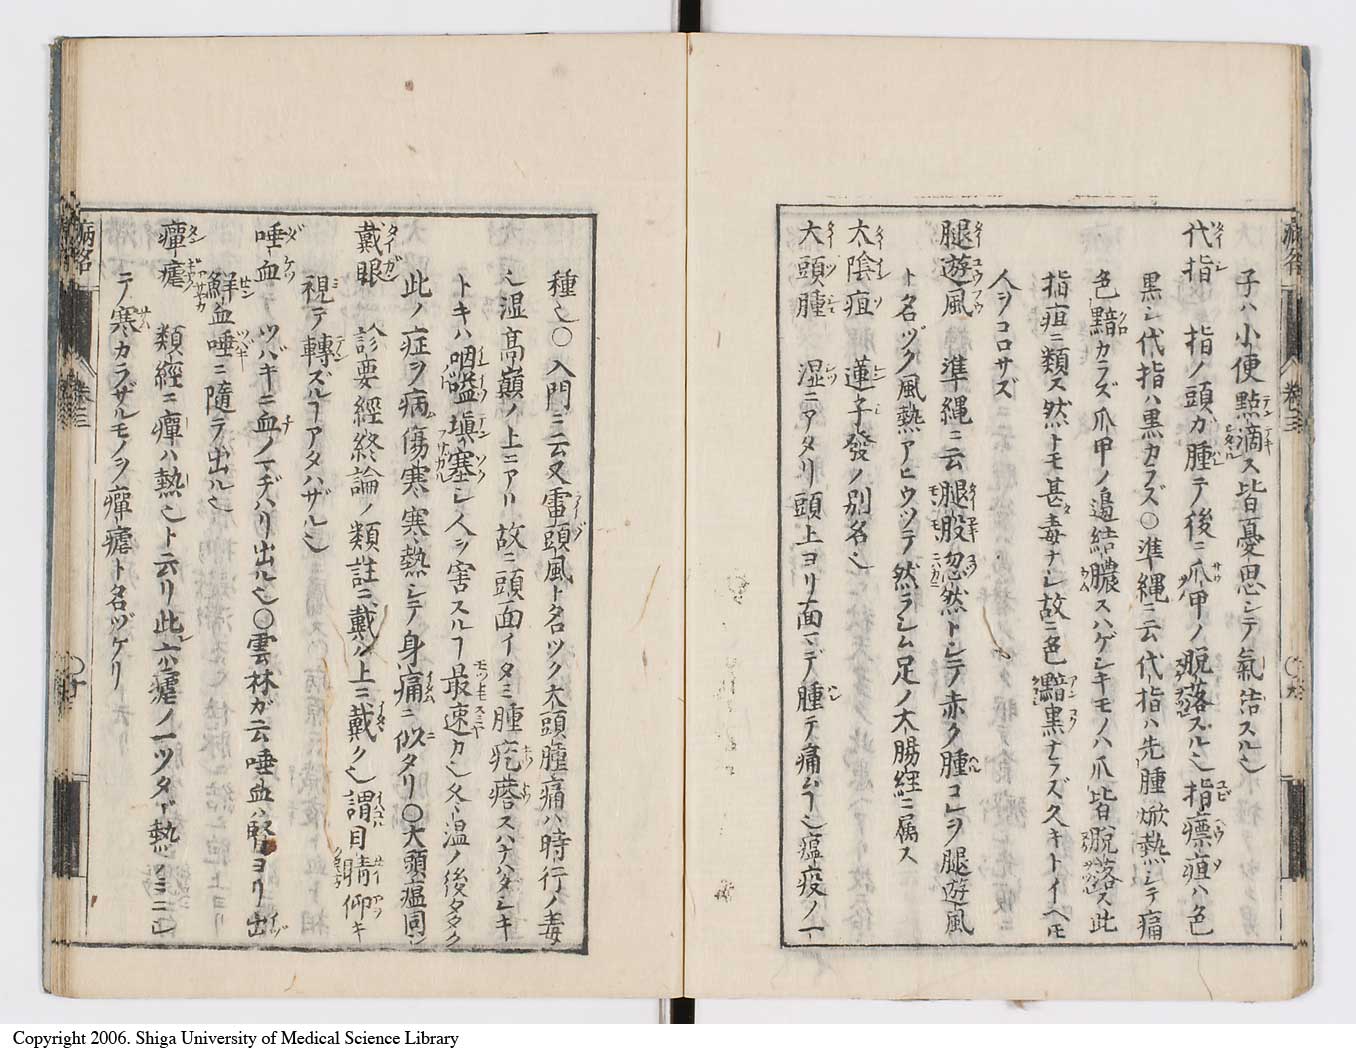 子ハ小便點滴ス皆憂思シテ氣結スルヿ
代指 指ノ頭カ腫テ後ニ爪甲ノ脱落ズルヿ指瘭疽ハ色
黒シ代指ハ黒カラズ〇準縄ニ云代指ハ先腫焮熱シテ痛
色黯カラズ爪甲ノ邉結膿スハゲシキモノハ爪皆脱落ス此
指疽ニ類ス然トモ甚毒ナシ故ニ色黯黒ナラズ久キトイヘモ
人ヲコロサズ
腿遊風 準縄ニ云腿股忽然トシテ赤ク腫コレヲ腿遊風
ト名ヅク風熱アヒウツテ然ラシム足ノ太腸経ニ属ス
太陰疽 蓮子發ノ別名也
大頭腫 湿ニアタリ頭上ヨリ面マデ腫テ痛ムヿ也瘟疫ノ一
種也〇入門ニ云又雷頭風ト名ツク大頭腫痛ハ時行ノ毒
之湿高巔ノ上ニアリ故ニ頭面イタミ腫疙瘩スハナハタシキ
トキハ咽嗌塡塞シ人ヲ害スルヿ最速カ也冬温ノ後多ク
此ノ症ヲ病傷寒寒熱シテ身痛ニ似タリ〇大頭瘟同シ
戴眼 診要經終論ノ類註ニ戴ハ上ニ戴ク也謂目睛仰キ
視テ轉ズルヿアタハザル也
唾血 ツバキニ血ノマヂハリ出ル也〇雲林ガ云唾血ハ腎ヨリ出
鮮血唾ニ隨ヲ出ル也
癉瘧 類經ニ癉ハ熱也ト云リ此六瘧ノ一ツタヾ熱ノミニ
テ寒カラザルモノヲ癉瘧ト名ヅケリ
病名
卷三
Copyright 2006. Shiga University of Medical Science Library